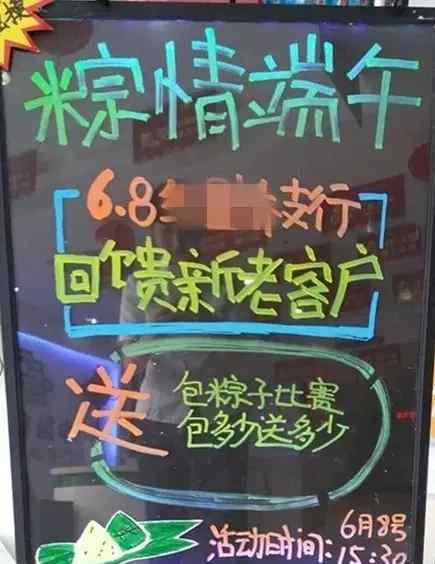 粽情端午
6.8 支行
回馈新老客户
送
包粽子比赛
包多少送多少
活动时间: 6月8号
15:30